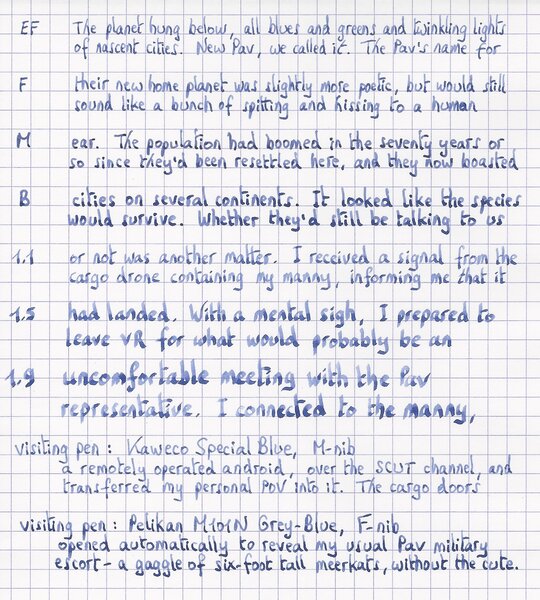 EF The planet hung below, all blues and greens and twinkling lights
of nascent cities. New Pav, we called it. The Pav's name for
F their new home planet was slightly more poetic, but would still
sound like a bunch of spitting and hissing to a human
M ear. The population had boomed in the seventy years or
so since they'd been resettled here, and they now boasted
B cities on several continents. It looked like the species
would survive. Whether they'd still be talking to us
1.1 or not was another matter. I received a signal from the
cargo drone containing my manny, informing me that it
1.5 had landed. With a mental sigh, I prepared to
leave VR for what would probably be an
1.9 uncomfortable meeting with the Pav
representative. I connected to the manny,
visiting pen : Kaweco Special Blue, M-nib
a remotely operated android, over the SCUT channel, and
transferred my personal POV into it. The cargo doors
visiting pen : Pelikan M101N Grey-Blue, F-nib
opened automatically to reveal my usual Pav military
escort - a gaggle of six-foot tall meerkats, without the cute.